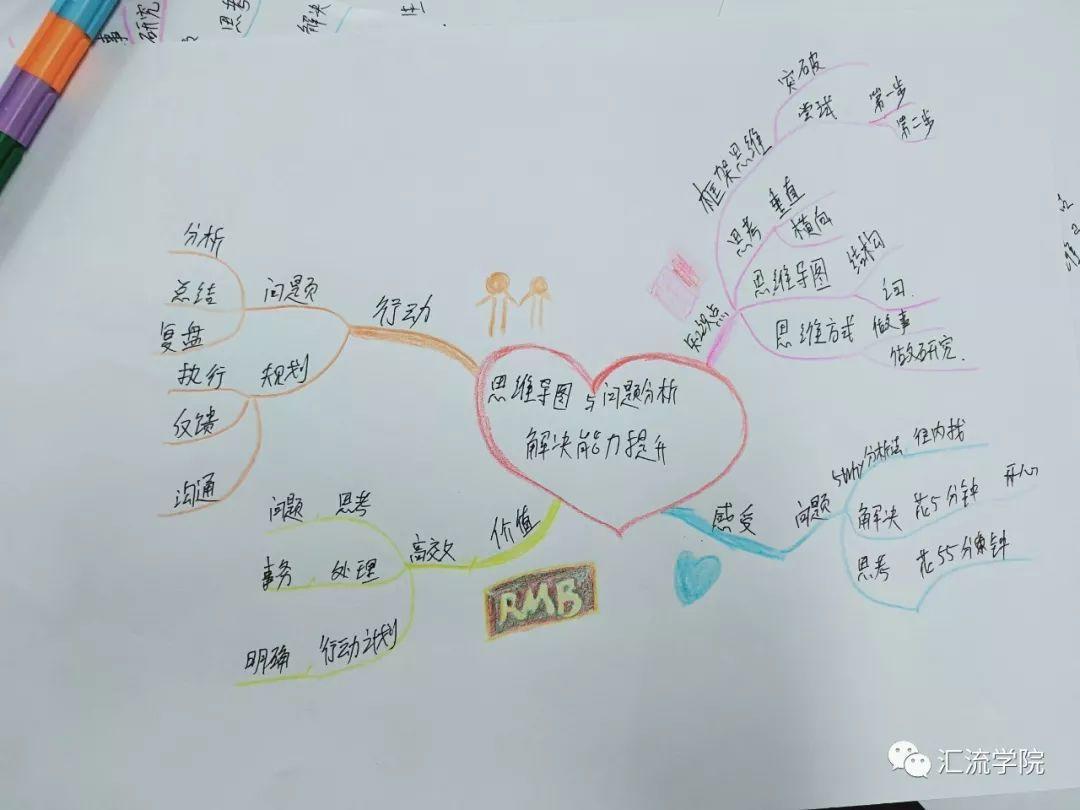 研究
思考
解决
思维导图与问题分析
解决能力提升
知识点
框架思维
突破
尝试
第一步
第二步
思考
垂直
横向
思维导图
结构
思维方式
做事
做研究.
感受
问题
5Why分析法 往内找
解决 花5分钟 开心
思考 花55分钟
价值
高效
问题 思考
事务 处理
明确 行动计划
RMB
行动
问题
分析
总结
复盘
规划
执行
反馈
沟通
汇流学院